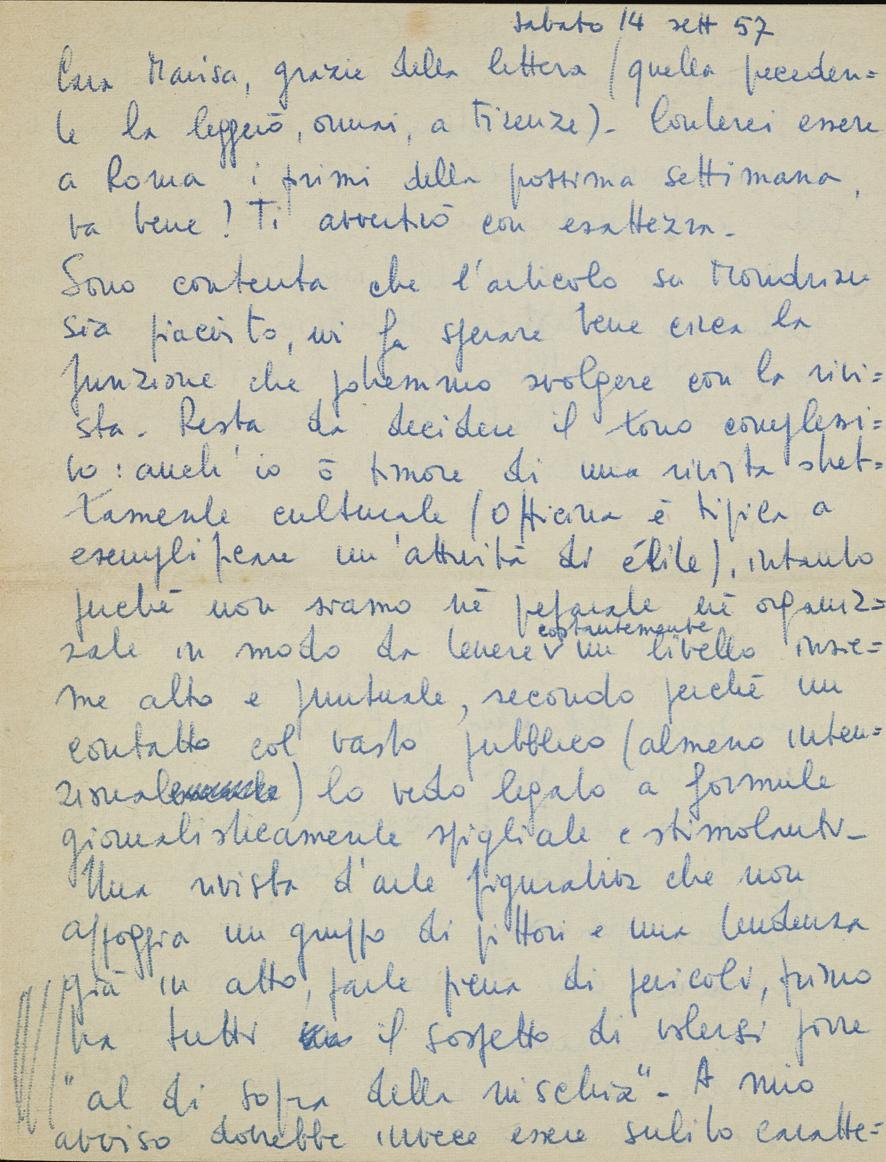 sabato 14 sett 57
Cara Marisa, grazie della lettera (quella preceden=
te la leggerò, ormai, a Firenze). Conterei essere
a Roma i primi della prossima settimana,
va bene? Ti avvertirò con esattezza.
Sono contenta che l'articolo su Mondrian
sia piaciuto, mi fa sperare bene circa la
funzione che potremmo svolgere con la rivi=
sta. Resta da decidere il tono complessi=
vo: anch'io ò timore di una rivista stret=
tamente culturale (Officina è tipica a
esemplificare un'attività di élite), intanto
perché non siamo né preparate né organiz=
zate in modo da tenere costantemente un livello insie=
me alto e puntuale, secondo perché un
contatto col vasto pubblico (almeno inten=
zionale) lo vedo legato a formule
giornalisticamente spigliate e stimolanti.
Una rivista d'arte figurativa che non
appoggia un gruppo di pittori e una tendenza
già in atto, parte piena di pericoli, primo
tra tutti il sospetto di volersi porre
"al di sopra della mischia". A mio
avviso dovrebbe invece essere subito caratte=